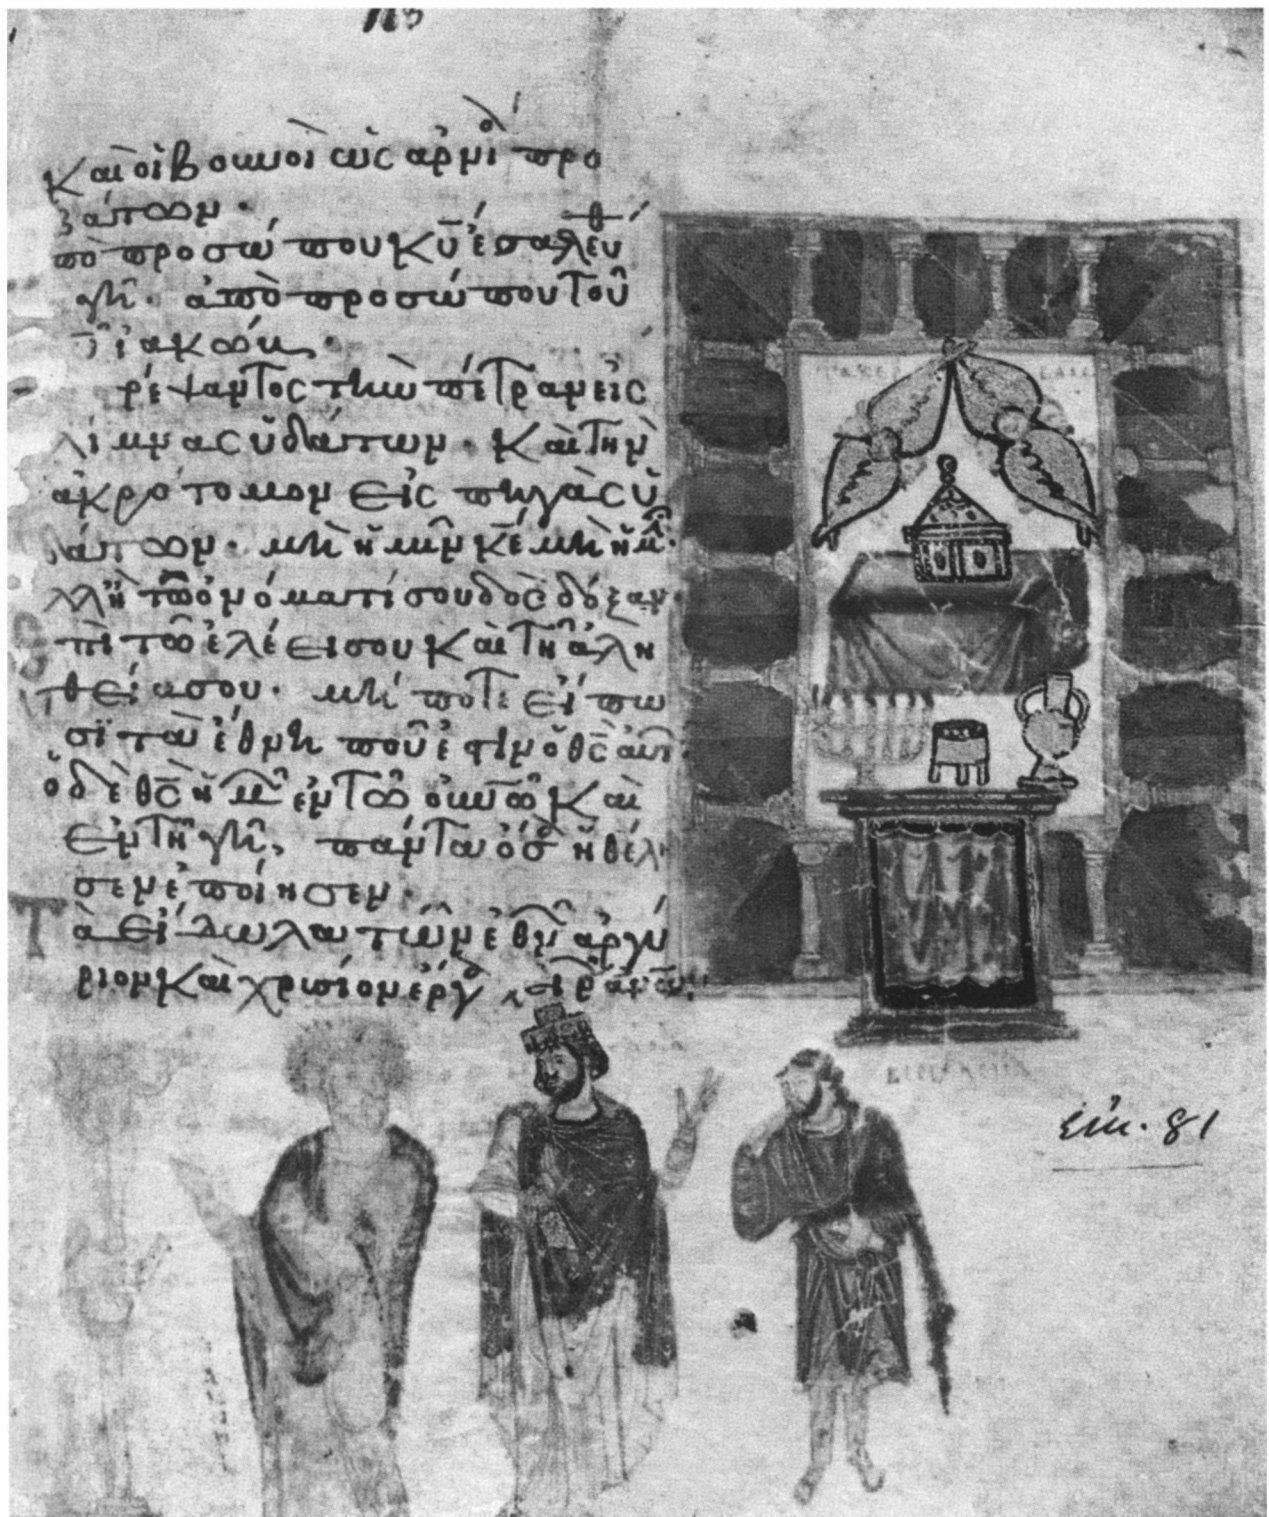 Καὶ οἱ βουνοὶ ὡς ἀρνί προ
βάτων·
πὸ προσώπου κῡ ἐσαλεύθ
γῆ· ἀπὸ προσώπου τοῦ
ἰακώβ·
ρέψαντος τὴν πέτραν εἰς
λίμνας ὑδάτων· Καὶ τὴν
ἀκρότομον εἰς πηγὰς ὑ
δάτων· μὴ ἡμῖν κε μὴ ἡμ
λλ ἢ τῶ ὀνόματί σου δὸς δόξαν·
πὶ τῶ ἐλέει σου Καὶ τῆ ἀλη
θεία σου· μή ποτε εἴπω
σϊ τὰ ἔθνη ποῦ ἐστιν ὁ θς αὐτ
ὁ δὲ θς ἡμ ἐν τῶ οὐνῶ Καὶ
ἐν τῆ γῆ, πάντα ὅσ ἠθέλη
σεν ἐποίησεν·
Τὰ εἴδωλα τῶν ἐθν ἀργύ
ριον Καὶ χρισίον ἔργ
εικ. 81